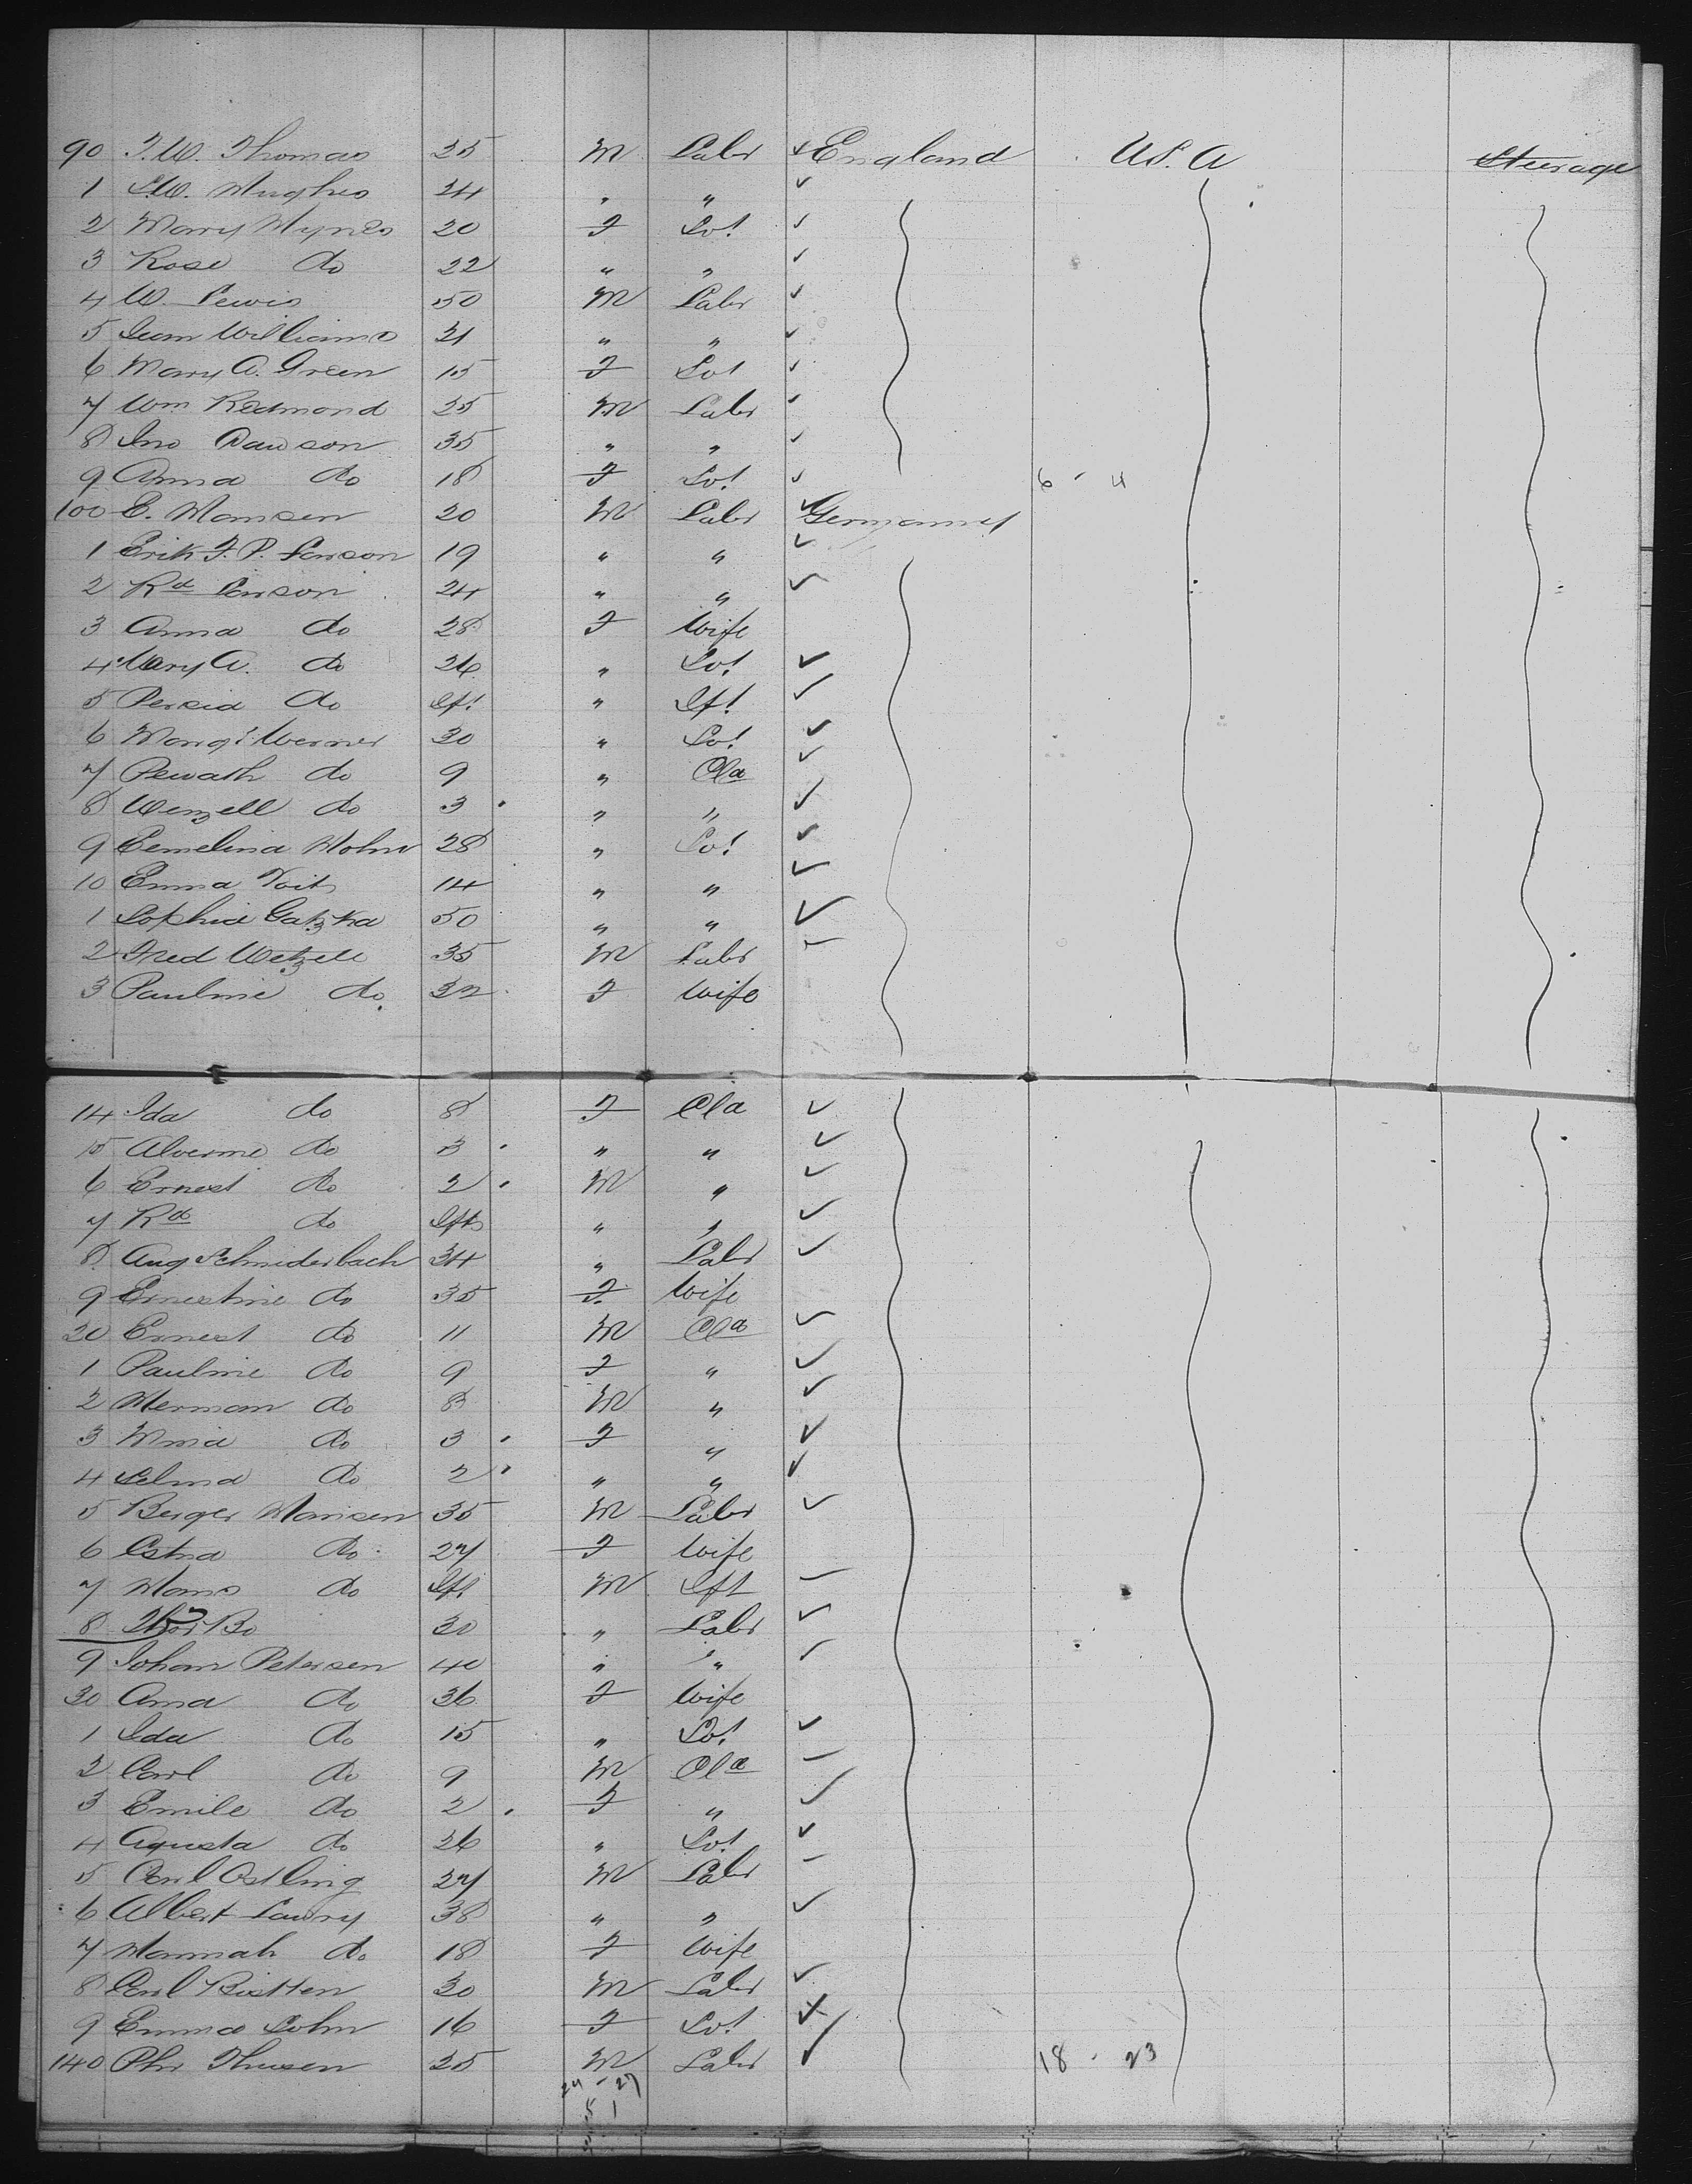 90 T.W. Thomas 25 M Labr England U.S.A Steerage
1 S.W. Hughes 24 " "
2 Mary Hynes 20 F Spt
3 Rose do 22 " "
4 W. Lewis 50 M Labr
5 Williams 21 " "
6 Mary A. Green 15 F Spt
7 Wm Redmond 25 M Labr
8 Jno Dawson 35 " "
9 Anna do 18 F Spt 6 - 4
100 E. Hansen 20 M Labr Germany
1 Erik F. P. Larson 19 " "
2 Rd Larson 24 " "
3 Anna do 28 F Wife
4 Mary A. do 26 " Spt
5 Persia do Ift " Ift
6 Margt Werner 30 " Spt
7 do 9 " Cld
8 Wenzell do 3 " "
9 Emelina Hohn 28 " Spt
10 Emma Voit 14 " "
1 Sophia Gatzka 50 " "
2 Fred Wetzell 35 M Labr
3 Pauline do 32 F Wife
14 Ida do 8 F Cld
15 do 3 " "
6 Ernest do 2 M "
7 Rd do Ift " "
8 Aug Schniderbach 34 " Labr
9 Ernestine do 35 F Wife
20 Ernest do 11 M Cld
1 Pauline do 9 F "
2 Herman do 8 M "
3 do 3 F "
4 Selma do 2 " "
5 Berger Hansen 35 M Labr
6 do 27 F Wife
7 Hans do Ift M Ift
8 Bo 30 " Labr
9 Johan Petersen 40 " "
30 Anna do 36 F Wife
1 Ida do 15 " Spt
2 Carl do 9 M Cld
3 Emile do 2 F "
4 Agusta do 26 " Spt
5 Carl Ostling 27 M Labr
6 Albert Lawry 38 " "
7 Hannah do 18 F Wife
8 Carl 30 M Labr
9 Emma Sohn 16 F Spt
140 Phr Thusen 25 M Labr 18 - 23
24 - 27
5 1